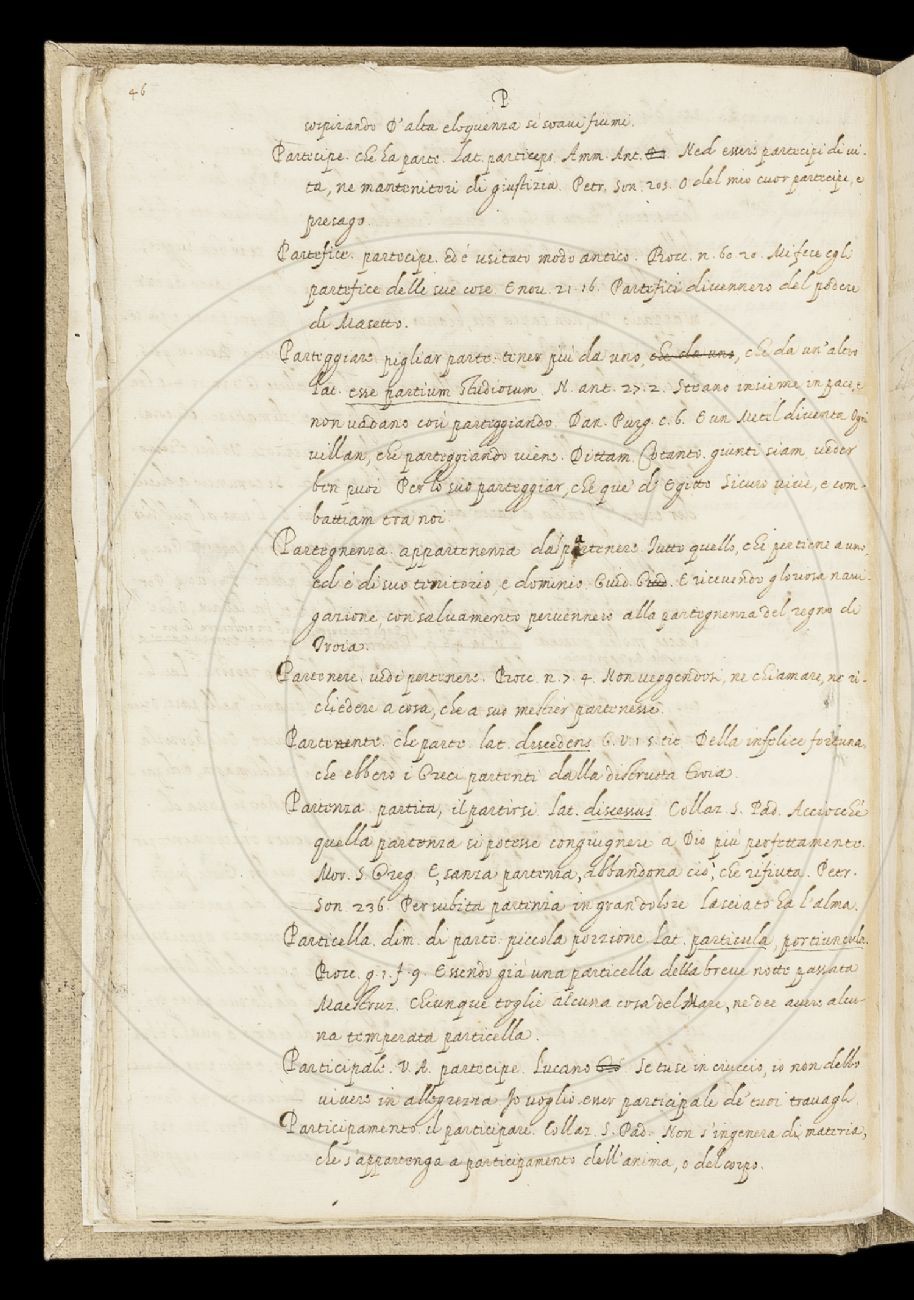 46
P
sospirando D'alta eloquenza sì soavi fiumi.
Partecipe. che ha parte. Lat. particeps. Amm. Ant. Ned essere partecipi di vi-
ta, ne mantenitori di giustizia. Petr. Son. 205. O del mio cuor partecipe, e
presago.
Partefice. partecipe. ed è usitato modo antico. Bocc. n. 60. 20. Mi fece egli
partefice delle sue cose. E nov. 21. 16. Partefici divennero del podere
di Masetto.
Parteggiare, pegliar parte. tener più da uno, che da uno, che da un'altro
Lat. esse partium studiosum. N. ant. 27. 2. Steano insieme in pace, e
non vadano così parteggiando. Dan. Purg. c. 6. E un Metel diventa Ogni
villan, che parteggiando viene. Dittam. Cotanto. giunti siam, veder
ben puoi Per lo suo parteggiar, che que' d'Egitto Sicuro vive, e com-
battiam tra noi.
Partegnenza. appartenenza da partenere. Tutto quello, che pertiene a uno,
ed è di suo tenitorio, e dominio. Guid. Guid. E ricevendo gloriosa navi-
gazione, con salvamento pervennero alla partegnenza del regno di
Troia.
Partenere. vedi pertenere. Bocc. n. 7. 4. Non veggendosi, ne chiamare, ne ri-
chiedere a cosa, che a suo mestier partenesse.
Partenente. che parte. lat. discedens G. V. 1. 5. tit. Della infelice fortuna,
che ebbero i Greci partenti dalla distrutta Troia.
Partenza. partita, il partirsi. Lat. discessus. Collaz. S. Pad. Acciocchè
quella partenza si potesse congiugnere a Dio più perfettamente.
Mor. S. Greg. E, sanza partenza, abbandona ciò, che rifiuta. Petr.
Son. 236. Per subita partenza in gran dolore Lasciato ha l'alma.
Particella. dim. di parte. piccola porzione. Lat. particula, portiuncula.
Bocc. g. 7. f. 9. Essendo già una particella della breve notte passata
Maestruz. Chiunque toglie alcuna cosa del Mare, ne dee avere alcu-
na temperata particella.
Participale. V. A. partecipe. Lucano Se tu se in cruccio, io non debbo
vivere in allegrezza Io voglio esser participale de' tuoi travagli.
Participamento. il participare. Collaz. S. Pad. Non s'ingenera di materia,
che s'appartenga a participamento dell'anima, o del corpo.